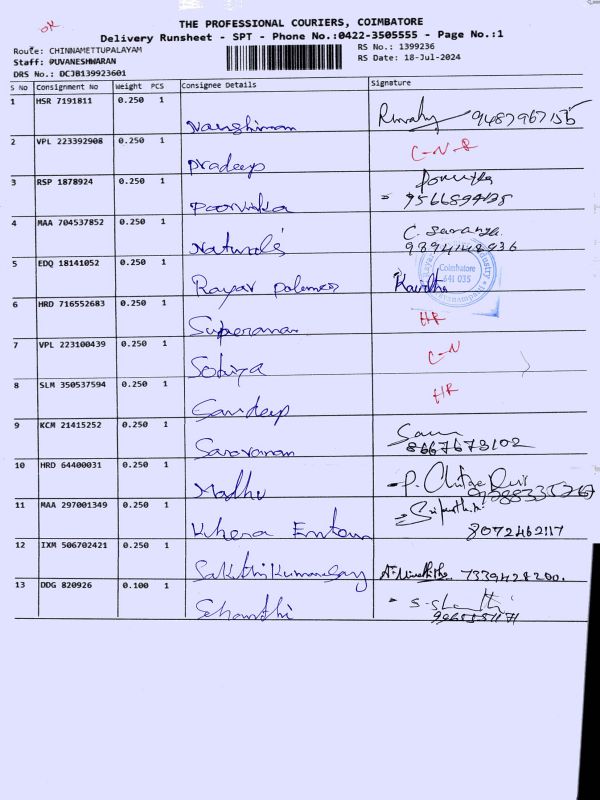 OK
THE PROFESSIONAL COURIERS, COIMBATORE
Delivery Runsheet - SPT - Phone No.:0422-3505555 - Page No.:1
Route: CHINNAMETTUPALAYAM
RS No.: 1399236
Staff: PUVANESHWARAN
RS Date: 18-Jul-2024
DRS No.: DCJB139923601
S No Consignment No Weight PCS Consignee Details Signature
1 HSR 7191811 0.250 1
2 VPL 223392908 0.250 1 Pradeep
3 RSP 1878924 0.250 1 Poorvika
4 MAA 704537852 0.250 1 Naturals C. Saranya
5 EDQ 18141052 0.250 1 Rayar
Coimbatore
641 035
6 HRD 716552683 0.250 1 HR
7 VPL 223100439 0.250 1 Sobiya C-N
8 SLM 350537594 0.250 1 Sandeep HR
9 KCM 21415252 0.250 1 Saravanan
8667673102
10 HRD 64400031 0.250 1 Madhu
11 MAA 297001349 0.250 1
8072462117
12 IXM 506702421 0.250 1 7339428200.
13 DDG 820926 0.100 1 Shanthi